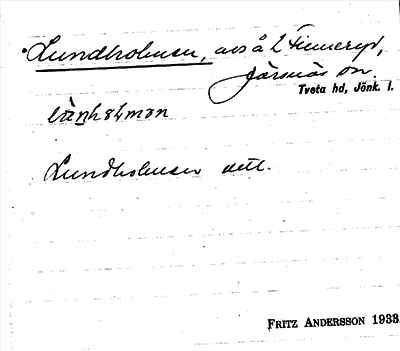 Lundholmen, avs å L Finneryd,
Järsnäs sn.
Tveta hd, Jönk. l.
Lundholmen dett.
FRITZ ANDERSSON 1933